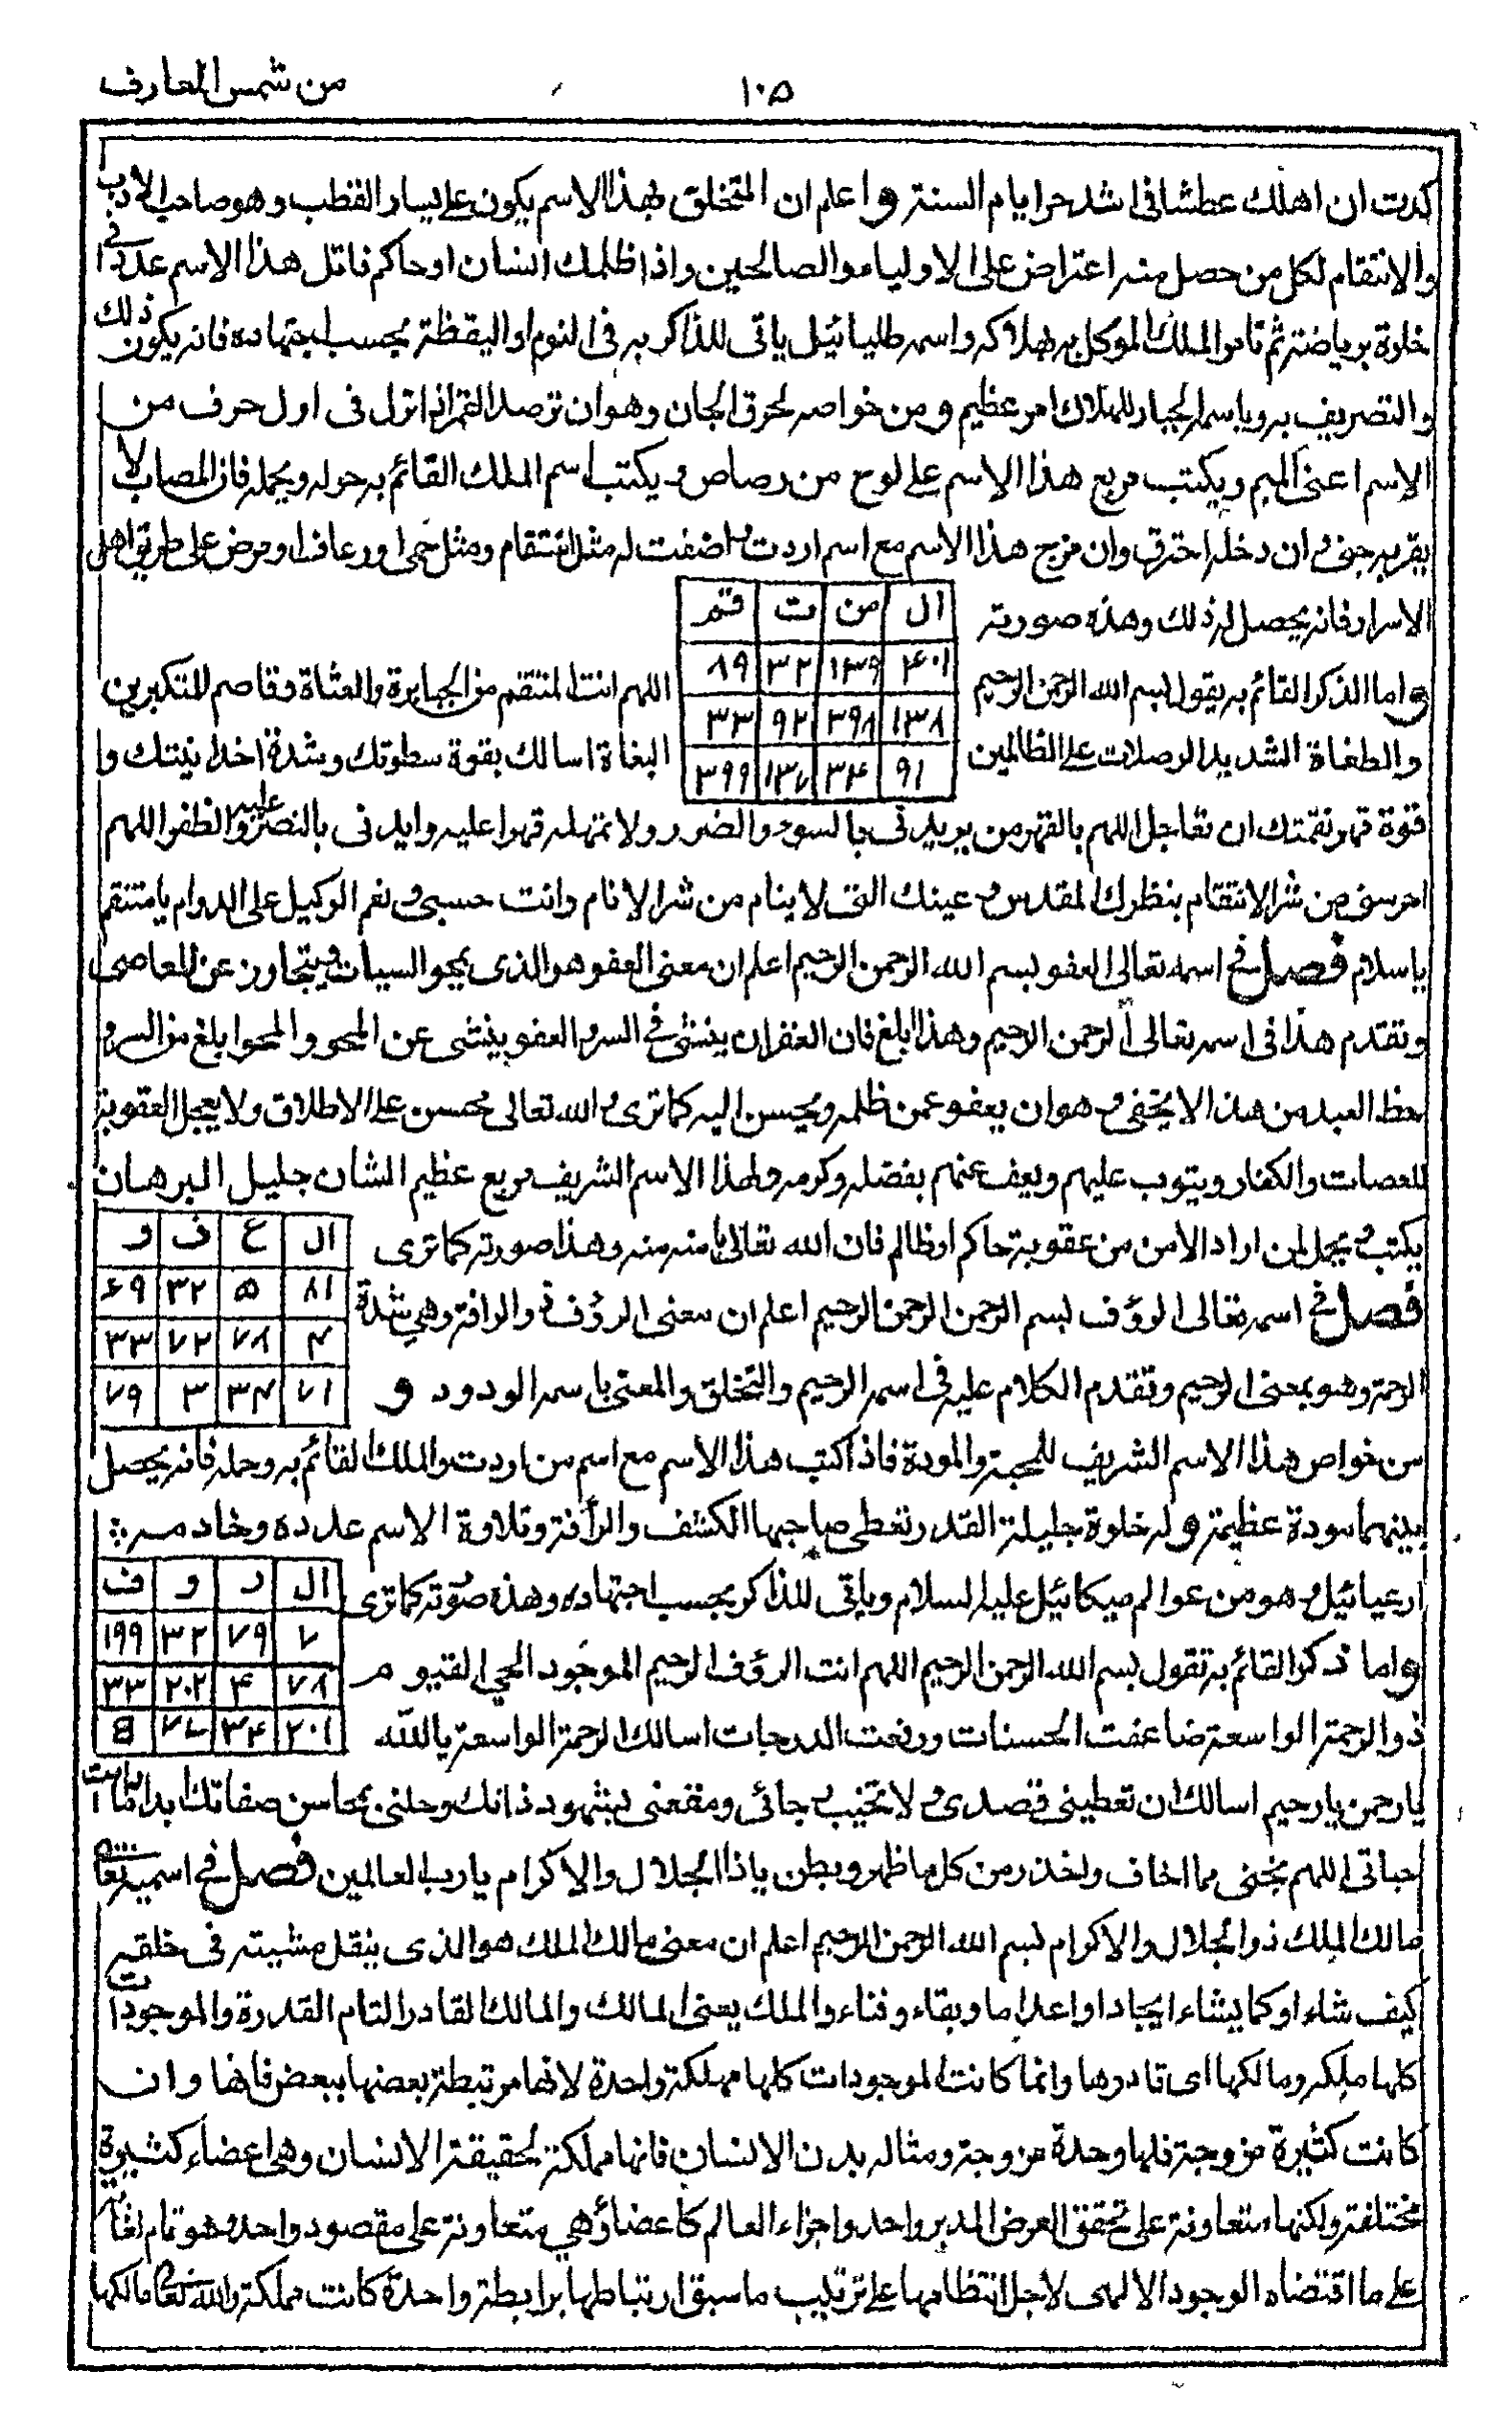 ١٠٥
من شمس المعارف
كدت ان اهلك عطشا فى اشد حر ايام السنة واعلم ان المتخلق بهذا الاسم يكون على يسار القطب وهو صاحب الادب
والانتقام لكل من حصل منه اعتراض على الاولياء والصالحين واذا ظلمك انسان او حاكم فاتل هذا الاسم عدده فى
خلوة برياضة ثم تامر الملك الموكل به بهلاكه واسمه طليائيل ياتى للذاكر به فى النوم او اليقظة بحسب اجتهاده فانه يكون ذلك
والتصريف به وباسمه الجبار للهلاك امر عظيم ومن خواصه لحرق الجان وهو ان ترصد القمر اذا نزل فى اول حرف من
الاسم اعنى الميم ويكتب مربع هذا الاسم على لوح من رصاص ويكتب اسم الملك القائم به حوله ويحمله فان المصاب لا
يقربه جنى وان دخله احترق وان مزج هذا الاسم مع اسم اردت واضفت له مثل انتقام ومثل حمى او رعاف او مرض على طريق اهل
الاسرار فانه يحصل له ذلك وهذه صورته
ال من ت قم
٤٠١ ١٣٩ ٣٢ ٨٩
١٣٨ ٣٩٨ ٩٢ ٣٣
٩١ ٣٤ ١٣٧ ٣٩٩
واما الذكر القائم به يقول بسم الله الرحمن الرحيم اللهم انت المنتقم من الجبابرة والعتاة وقاصم المتكبرين
والطغاة الشديد الوصلات على الظالمين البغاة اسالك بقوة سطوتك وشدة اخذ انيتك وا
قوة قهر نقمتك ان تعاجل اللهم بالقهر من يريدنى بالسوء والضرر ولا تمهله قهرا عليه وايدنى بالنصر عليه والظفر اللهم
احرسنى من شر الانتقام بنظرك المقدس وعينك التى لا ينام من شر الانام وانت حسبى ونعم الوكيل على الدوام يا منتقم
يا سلام فصل فى اسمه تعالى العفو بسم الله الرحمن الرحيم اعلم ان معنى العفو هو الذى يمحو السيات ويتجاوز عن المعاصى
وتقدم هذا فى اسمه تعالى الرحمن الرحيم وهذا ابلغ فان الغفران ينشى فى الستر والعفو ينشى عن المحو والمحو ابلغ من الستر و
حظ العبد من هذا لا يخفى وهو ان يعفو عمن ظلمه ويحسن اليه كما ترى والله تعالى محسن على الاطلاق ولا يعجل العقوبة
للعصات والكفار ويتوب عليهم ويعف عنهم بفضله وكرمه ولهذا الاسم الشريف مربع عظيم الشان جليل البرهان
يكتب ويحمل لمن اراد الامن من عقوبة حاكم او ظالم فان الله تعالى يامنه منه وهذا صورته كما ترى
ال ع ف و
٨١ ٥ ٣٢ ٦٩
٤ ٧٨ ٧٢ ٣٣
٧١ ٣٤ ٣ ٧٩
فصل فى اسمه تعالى الرؤف بسم الرحمن الرحمن الرحيم اعلم ان معنى الرؤف ذو الرافة وهى شدة
الرحمة وهو بمعنى الرحيم وتقدم الكلام عليه فى اسمه الرحيم والتخلق والمعنى باسمه الودود و
من خواص هذا الاسم الشريف للمحبة والمودة فاذا كتب هذا الاسم مع اسم من اردت والملك القائم به وحمله فانه يحصل
بينهما مودة عظيمة وله خلوة جليلة القدر تعطى صاحبها الكشف والرأفة وتلاوة الاسم عدده وخادمه
ال ر و ف
٧ ٧٩ ٣٢ ١٩٩
٧٨ ٤ ٢٠٢ ٣٣
٢٠١ ٣٤ ٧٧ 8
ارعيائيل وهو من عوالم ميكائيل عليه السلام وياتى للذاكر بحسب اجتهاده وهذه صورته كما ترى
واما ذكر القائم به تقول بسم الله الرحمن الرحيم اللهم انت الرؤف الرحيم الموجود الحي القيوم
ذو الرحمة الواسعة ضاعفت الحسنات ورفعت الدرجات اسالك الرحمة الواسعة يا الله
يا رحمن يا رحيم اسالك ان تعطينى قصدى ولا تخيب رجائى ومتعنى بشهود ذاتك وحلنى بمحاسن صفاتك ابدا ما دامت
حياتى اللهم نجنى مما اخاف واحذر من كل ما ظهر وبطن يا ذا الجلال والاكرام يا رب العالمين فصل فى اسميه تعا
مالك الملك ذو الجلال والاكرام بسم الله الرحمن الرحيم اعلم ان معنى مالك الملك هو الذى ينقل مشيته فى خلقه
كيف شاء او كما يشاء ايجادا واعداما وبقاء وفناء والملك يعنى المالك والمالك القادر التام القدرة والموجودات
كلها ملكه ومالكها اى قادرها وانما كانت الموجودات كلها مهلكة واحدة لانها مرتبطة بعضها ببعض فانها وان
كانت كثيرة من وجهة فلها وحدة من وجهة ومثاله بدن الانسان فانها مملكة لحقيقة الانسان وهى اعضاء كثيرة
مختلفة ولكنها متعاونة على تحقق الغرض المدبر واحد واجزاء العالم كاعضاؤهى متعاونة على مقصود واحد وهو تمام
على ما اقتضاه الوجود الالهى لاجل انتظامها على ترتيب ما سبق ارتباطها برابطة واحدة كانت مملكة والله تعا مالكها